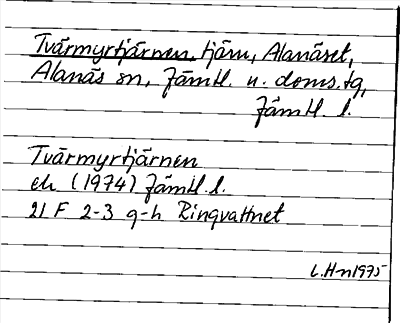 Tvärmyrtjärnen, tjärn, Alanäset,
Alanäs sn, Jämtl. n. doms. tg,
Jämtl. l.
Tvärmyrtjärnen
ek (1974) Jämtl. l.
21 F 2-3 g-h Ringvattnet
L.Hn 1975